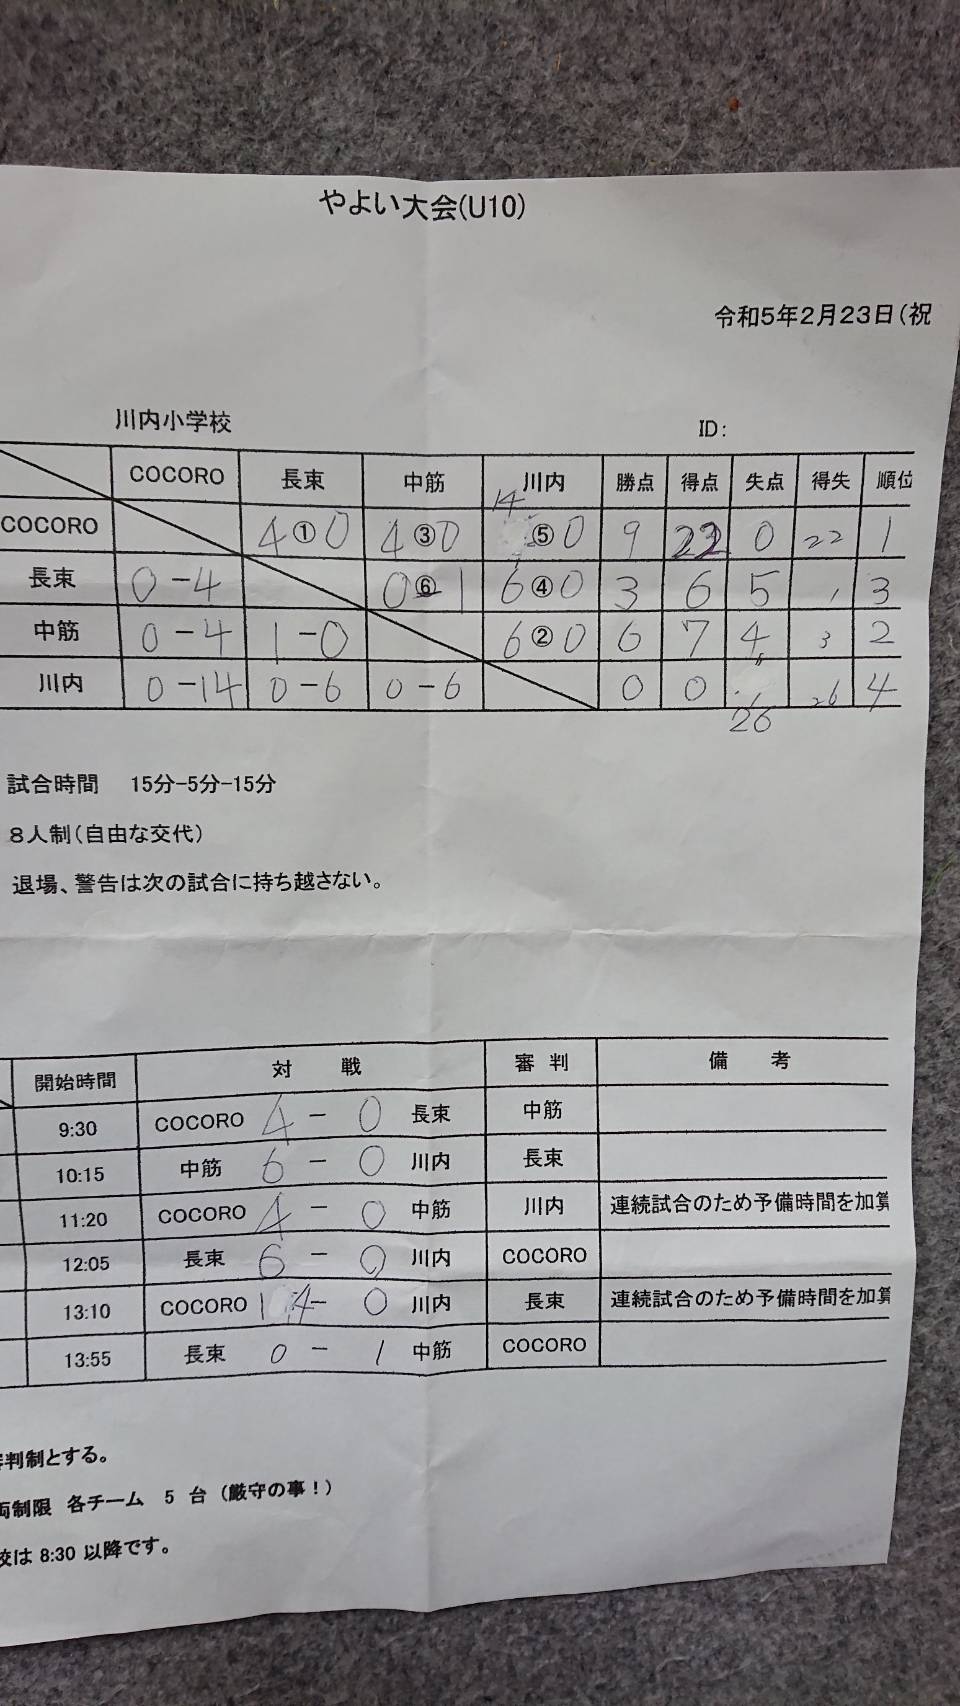 やよい大会(U10)
令和5年2月23日(祝
川内小学校 ID:
COCORO 長束 中筋 川内 勝点 得点 失点 得失 順位
COCORO 4①0 4③0 14⑤0 9 22 0 22 1
長束 0-4 0⑥1 6④0 3 6 5 1 3
中筋 0-4 1-0 6②0 6 7 4 3 2
川内 0-14 0-6 0-6 0 0 26 26 4
試合時間 15分-5分-15分
8人制(自由な交代)
退場、警告は次の試合に持ち越さない。
開始時間 対 戦 審判 備 考
9:30 COCORO 4-0 長束 中筋
10:15 中筋 6-0 川内 長束
11:20 COCORO 4-0 中筋 川内 連続試合のため予備時間を加算
12:05 長束 6-0 川内 COCORO
13:10 COCORO 14-0 川内 長束 連続試合のため予備時間を加算
13:55 長束 0-1 中筋 COCORO
審判制とする。
両制限 各チーム 5 台 (厳守の事!)
校は 8:30 以降です。